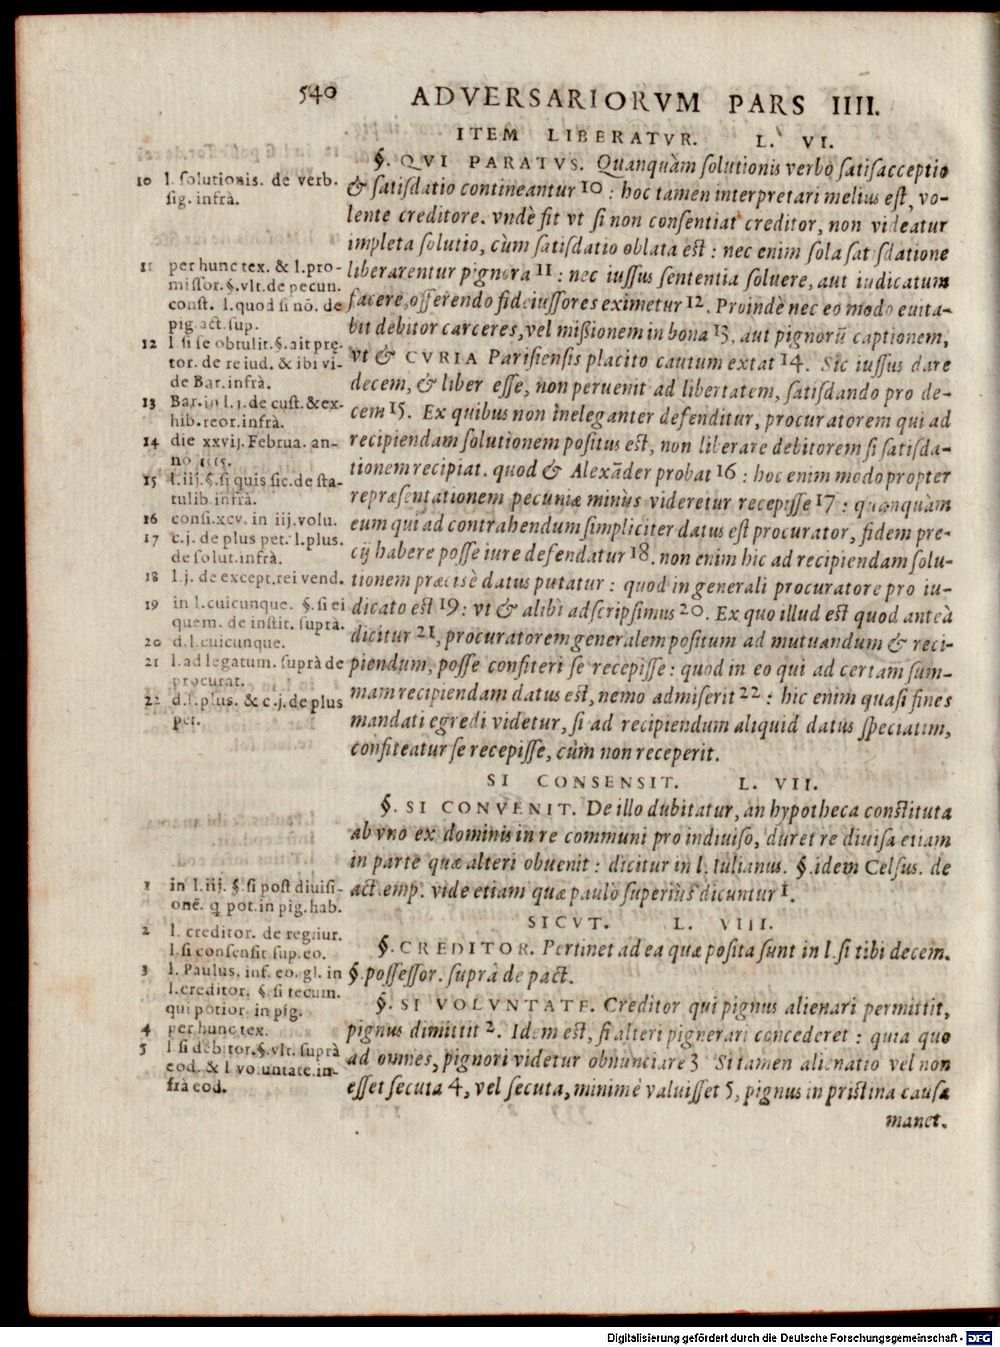 540 ADVERSARIORVM PARS IIII.
ITEM LIBERATVR. L. VI.
§. QVI PARATVS. Quanquàm solutionis verbo satisacceptio
& satisdatio contineantur 10 : hoc tamen interpretari melius est, vo-
lente creditore. vndè fit vt si non consentiat creditor, non videatur
impleta solutio, cùm satisdatio oblata est : nec enim sola satisdatione
liberarentur pignora 11 : nec iussus sententia soluere, aut iudicatum
facere, offerendo fideiussores eximetur 12. Proindè nec eo modo euita-
bit debitor carceres, vel mißionem in bona 13, aut pignorũ captionem,
vt & CVRIA Parisiensis placito cautum extat 14. Sic iussus dare
decem, & liber esse, non peruenit ad libertatem, satisdando pro de-
cem 15. Ex quibus non ineleganter defenditur, procuratorem qui ad
recipiendam solutionem positus est, non liberare debitorem si satisda-
tionem recipiat. quod & Alexãder probat 16 : hoc enim modo propter
repræsentationem pecuniæ minùs videretur recepisse 17 : quanquàm
eum qui ad contrahendum simpliciter datus est procurator, fidem pre-
cij habere posse iure defendatur 18. non enim hic ad recipiendam solu-
tionem præcisè datus putatur : quod in generali procuratore pro iu-
dicato est 19 : vt & alibi adscripsimus 20. Ex quo illud est quod anteà
dicitur 21, procuratorem generalem positum ad mutuandum & reci-
piendum, posse confiteri se recepisse : quod in eo qui ad certam sum-
mam recipiendam datus est, nemo admiserit 22 : hic enim quasi fines
mandati egredi videtur, si ad recipiendum aliquid datus speciatim,
confiteatur se recepisse, cùm non receperit.
SI CONSENSIT. L. VII.
§. SI CONVENIT. De illo dubitatur, an hypotheca constituta
ab vno ex dominis in re communi pro indiuiso, duret re diuisa etiam
in parte quæ alteri obuenit : dicitur in l. Iulianus. §. idem Celsus. de
act. emp. vide etiam quæ paulò superiùs dicuntur 1.
SICVT. L. VIII.
§. CREDITOR. Pertinet ad ea quæ posita sunt in l. si tibi decem.
§. possessor. suprà de pact.
§. SI VOLVNTATE. Creditor qui pignus alienari permittit,
pignus dimittit 2. Idem est, si alteri pignerari concederet : quia quo
ad omnes, pignori videtur obnunciare 3 Si tamen alienatio vel non
esset secuta 4, vel secuta, minimè valuisset 5, pignus in pristina causa
manet.
10 l. solutionis. de verb.
sig. infrà.
11 per hunc tex. & l. pro-
missor. §. vlt. de pecun.
const. l. quod si nõ. de
pig. act. sup.
12 l. si se obtulit. §. ait prę
tor. de re iud. & ibi vi-
de Bar. infrà.
13 Bar. in l. j. de cust. & ex-
hib. reor. infrà.
14 die xxvij. Februa. an-
no
15 l. iij. §. si quis sic. de sta-
tulib. infrà.
16 consi. xcv. in iij. volu.
17 c. j. de plus pet. l. plus.
de solut. infrà.
18 l. j. de except. rei vend.
19 in l. cuicunque. §. si ei
quem. de instit. suprà.
20 d. l. cuicunque.
21 l. ad legatum. suprà de
procurat.
22 d. l. plus. & c. j. de plus
pet.
1 in l. iij. §. si post diuisi-
onẽ. q pot. in pig. hab.
2 l. creditor. de reg. iur.
l. si consensit sup. eo.
3 l. Paulus. inf. eo. gl. in
l. creditor. §. si tecum.
qui potior. in pig.
4 per hunc tex.
5 l si debitor. §. vlt. suprà
eod. & l voluntate. in-
frà eod.
Digitalisierung gefördert durch die Deutsche Forschungsgemeinschaft - DFG